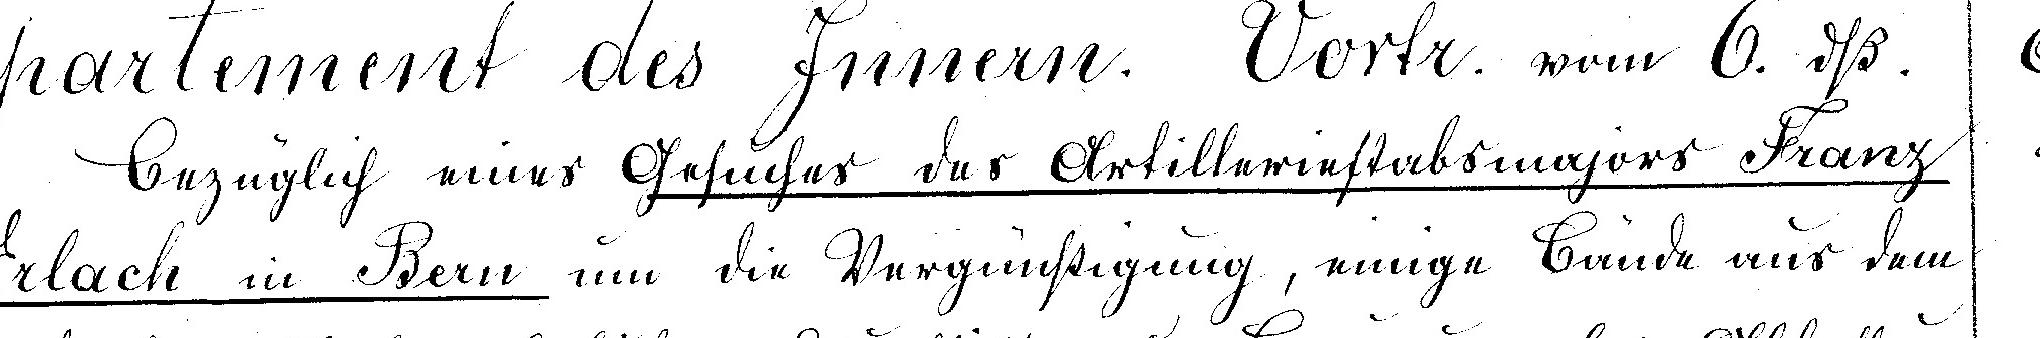 partement des Innern. Vortr. vom 6. dß.
Bezüglich eines Gesuches des Artilleriestabsmajors Franz
Erlach in Bern um die Vergünstigung, einige Bände aus dem